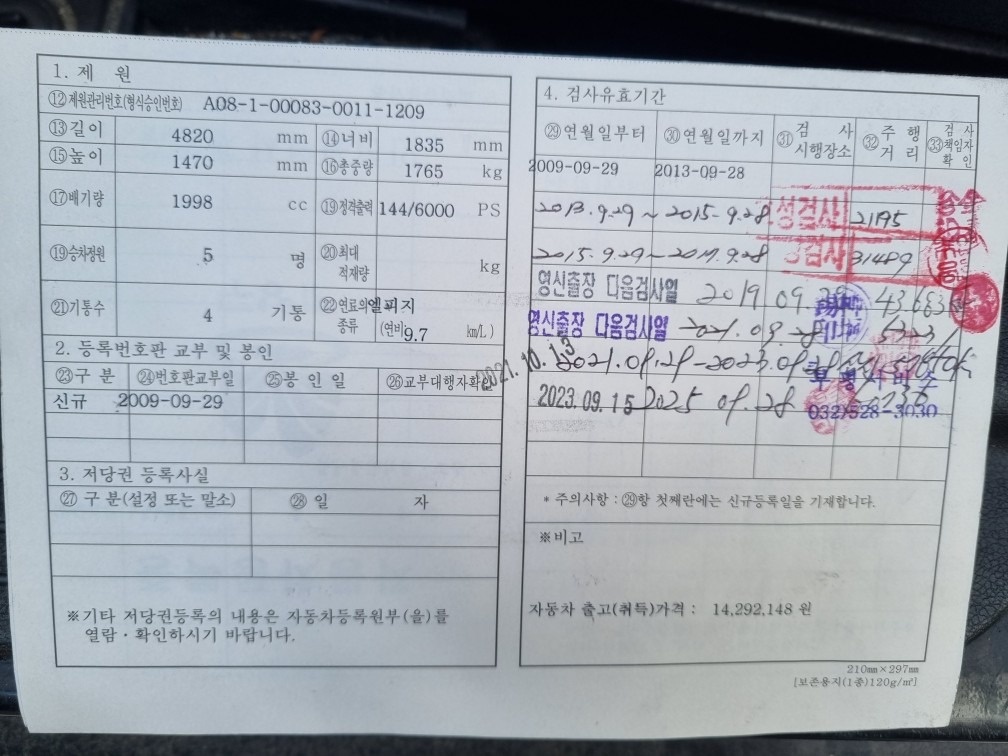 1. 제 원
⑫제원관리번호(형식승인번호) A08-1-00083-0011-1209
⑬길이 4820 mm ⑭너비 1835 mm
⑮높이 1470 mm ⑯총중량 1765 kg
⑰배기량 1998 cc ⑲정격출력 144/6000 PS
⑲승차정원 5 명 ⑳최대적재량 kg
㉑기통수 4 기통 ㉒연료의종류 엘피지 (연비)9.7 km/L)
2. 등록번호판 교부 및 봉인
㉓구 분 ㉔번호판교부일 ㉕봉 인 일 ㉖교부대행자확인
신규 2009-09-29
3. 저당권 등록사실
㉗구 분(설정 또는 말소) ㉘일 자
※기타 저당권등록의 내용은 자동차등록원부(을)를
열람·확인하시기 바랍니다.
4. 검사유효기간
㉙연월일부터 ㉚연월일까지 ㉛검 사 시행장소 ㉜주 행 거 리 ㉝검 사 책임자 확 인
2009-09-29 2013-09-28
2013.9.29 ~ 2015.9.28 성검사 21195
2015.9.29 ~ 2017.9.28 검사 31489
영신출장 다음검사일 2019.09.28
영신출장 다음검사일 2021.09.28
2021.10.13 2021.09.29-2023.09.28
2023.09.15 2025 09.28 032)528-3030
* 주의사항 : ㉙항 첫째란에는 신규등록일을 기재합니다.
※비고
자동차 출고(취득)가격 : 14,292,148 원
210㎜×297㎜
[보존용지(1종)120g/㎡]